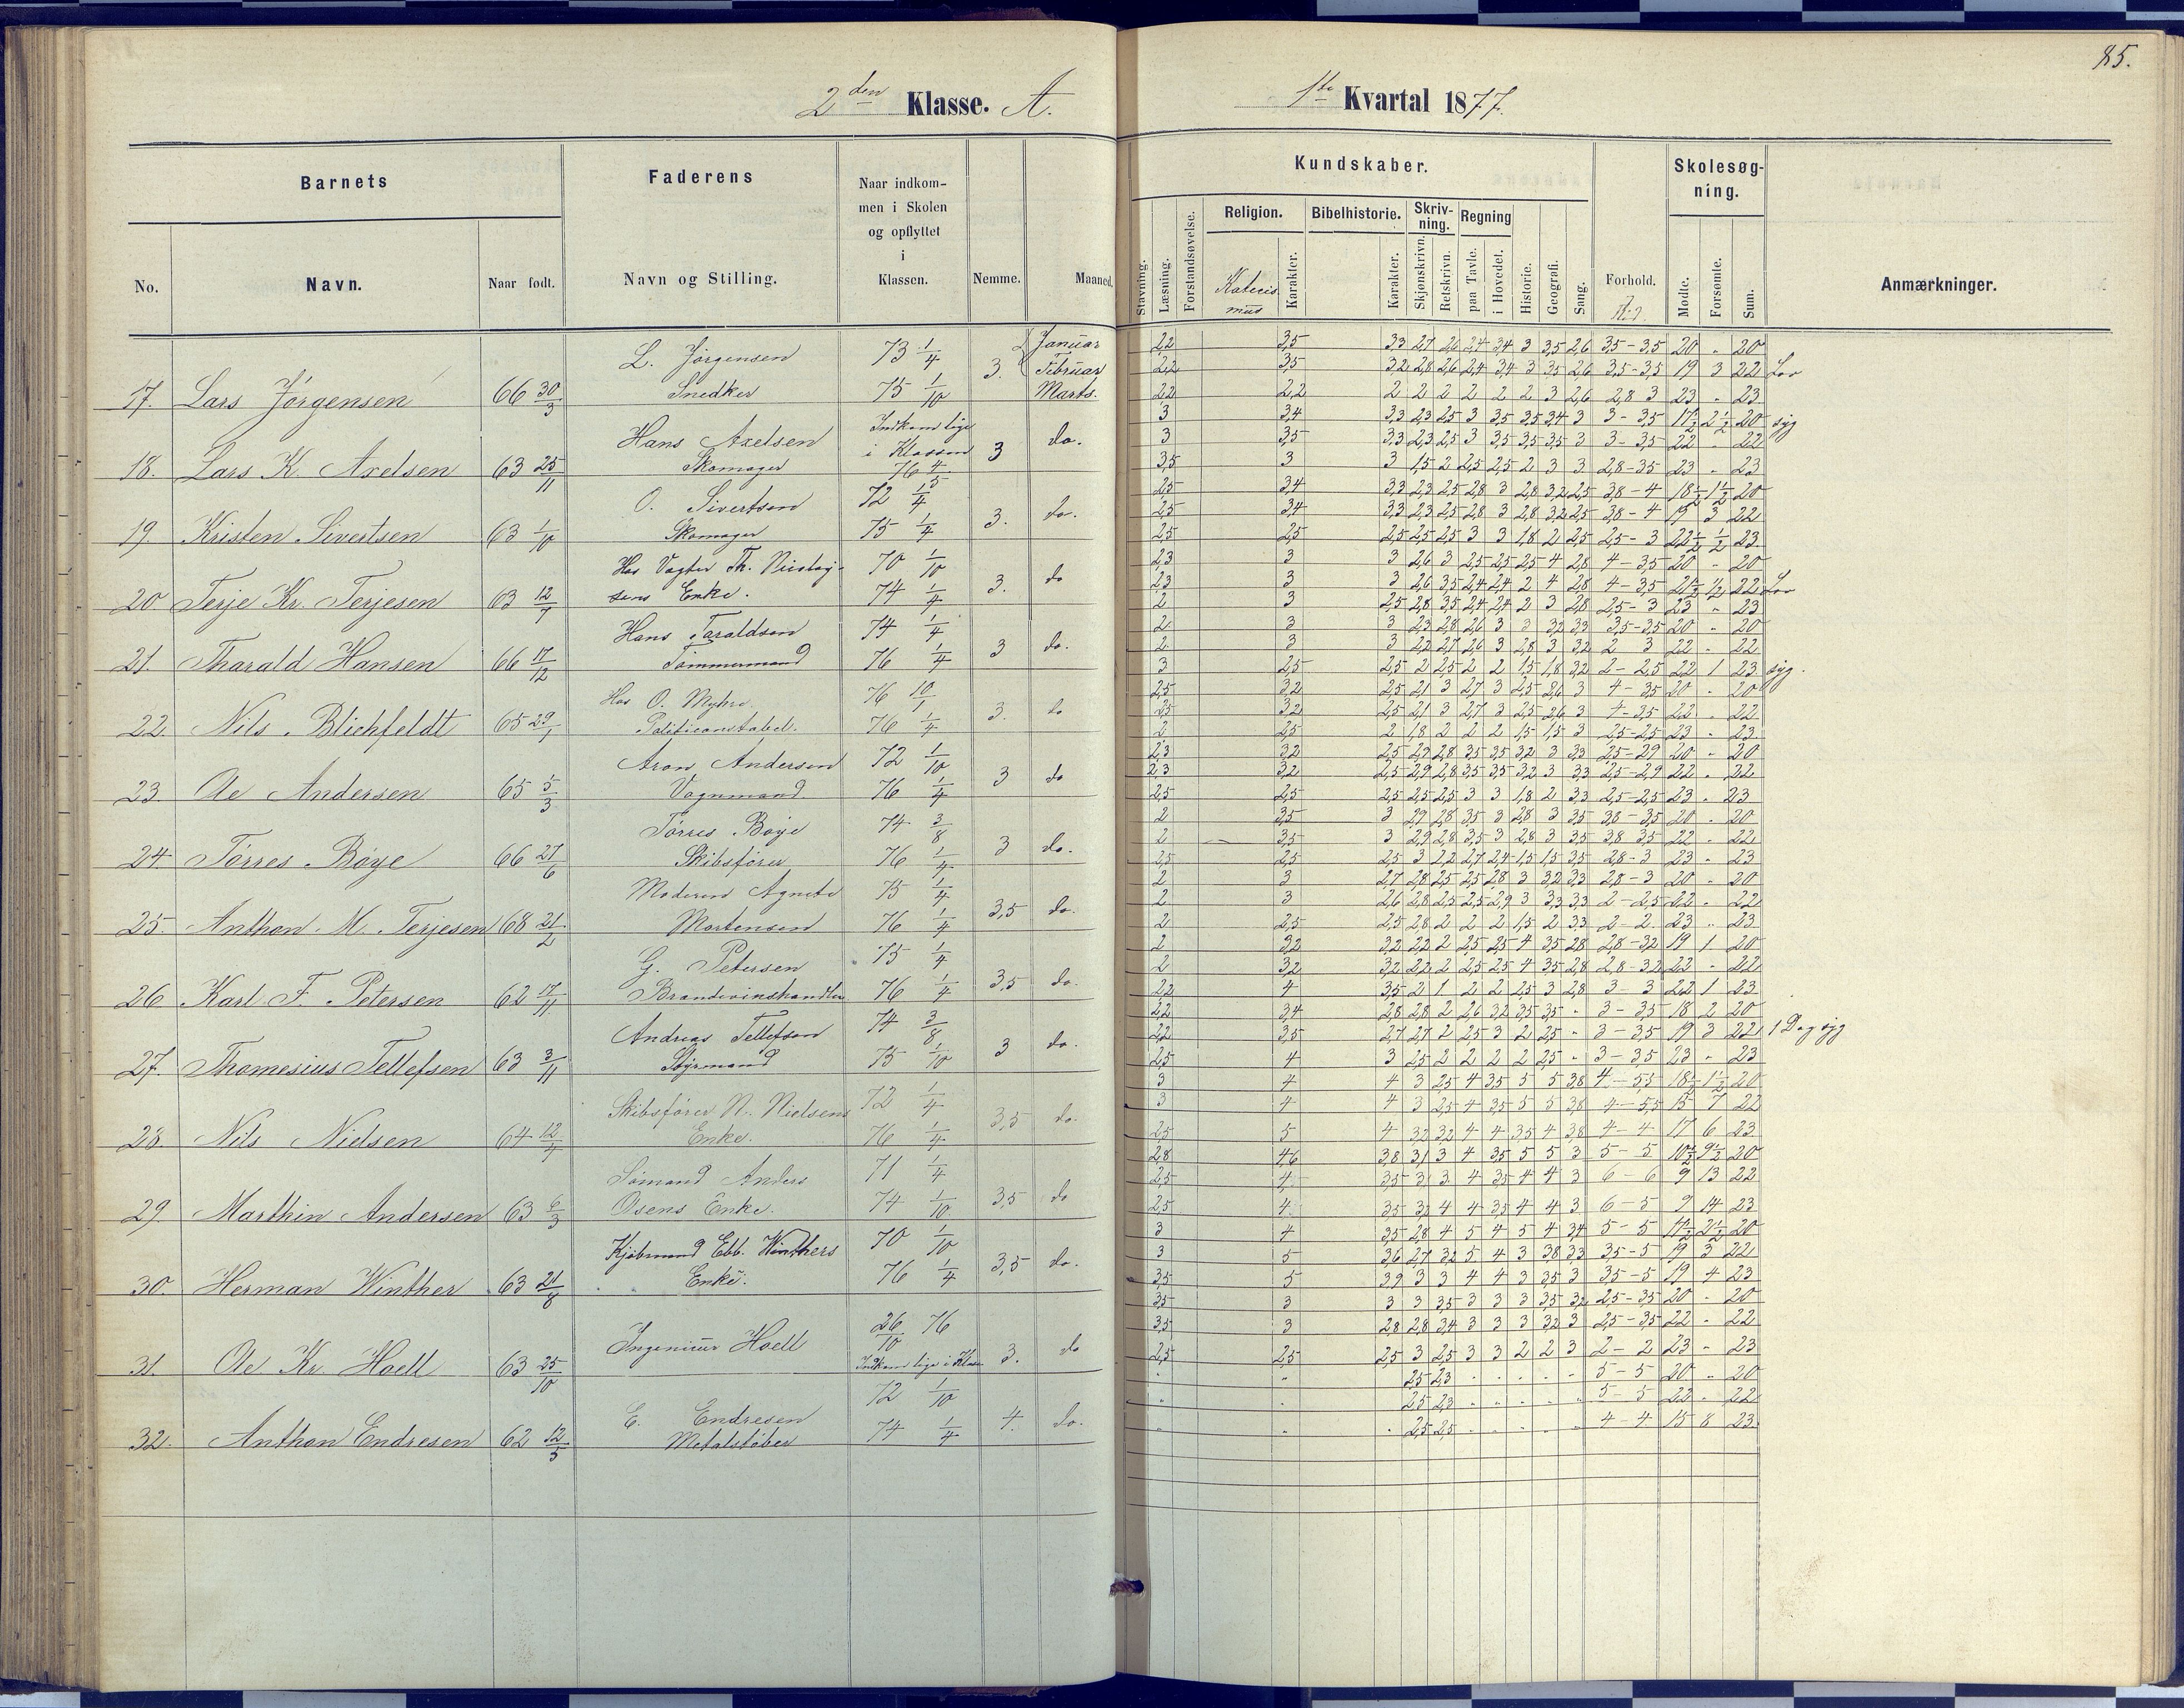 85.
2den Klasse. A.
1ste Kvartal 1877.
Barnets
Faderens
Naar indkommen i Skolen og opflyttet i Klassen.
Nemme.
Maaned.
No.
Navn.
Naar født.
Navn og Stilling.
Kundskaber.
Stavning.
Læsning.
Forstandsøvelse.
Religion.
Katecismus
Karakter.
Bibelhistorie.
Karakter.
Skrivning.
Skjønskrivn.
Retskrivn.
Regning
paa Tavle.
i Hovedet.
Historie.
Geografi.
Sang.
Forhold.
Flid.
Skolesøgning.
Mødte.
Forsømte.
Sum.
Anmærkninger.
17. Lars Jørgensen 66 30/3 L. Jørgensen Snedker 73 1/4 75 1/10 3. Januar Februar Marts.
2,2 3,5 3,3 2,7 2,6 2,4 3,4 3 3,5 2,6 3,5-3,5 20 „ 20
2,2 3,5 3,2 2,8 2,6 2,4 3,4 3 3,5 2,6 3,5-3,5 19 3 22 Lov
2,2 2,2 2 2 2 2 2 2 3 2,6 2,8 3 23 „ 23
18. Lars K. Axelsen 63 25/11 Hans Axelsen Skomager Indkom lige i Klassen 76 4/5 3 do.
3 3,4 3,3 2,3 2,5 3 3,5 3,5 3,4 3 3-3,5 17½ 2½ 20 syg
3 3,5 3,3 2,3 2,5 3 3,5 3,5 3,5 3 3-3,5 22 „ 22
3,5 3 3 1,5 2 2,5 2,5 2 3 3 2,8-3,5 23 „ 23
19. Kristen Sivertsen 63 1/10 O. Sivertsen Skomager 72 1/4 75 1/4 3. do.
2,5 3,4 3,3 2,3 2,5 2,8 3 2,8 3,2 2,5 3,8-4 18½ 1½ 20
2,5 3,4 3,3 2,3 2,5 2,8 3 2,8 3,2 2,5 3,8-4 19 3 22
2,5 2,5 2,5 2,5 2,5 3 3 1,8 2 2,5 2,5-3 22½ ½ 23
20 Terje Kr. Terjesen 63 12/7 Hos Vagter Th. Enke. 70 1/10 74 1/4 3. do
2,3 3 3 2,6 3 2,5 2,5 2,5 4 2,8 4-3,5 20 „ 20
2,3 3 3 2,6 3,5 2,4 2,4 2 4 2,8 4-3,5 21½ ½ 22 Lov
2 3 2,5 2,8 3,5 2,4 2,4 2 3 2,8 2,5-3 23 „ 23
21. Tharald Hansen 66 17/12 Hans Taraldsen Tømmermand 74 1/4 76 1/4 3 do.
2 3 3 2,3 2,8 2,6 3 3 3,2 3,3 3,5-3,5 20 „ 20
2 3 3 2,2 2,7 2,6 3 2,8 3 3,2 2 3 22 „ 22
3 2,5 2,5 2 2,5 2 2 1,5 1,8 3,2 2-2,5 22 1 23 syg.
22. Nils Blichfeldt 65 29/1 Hos O. Myhre Politiconstabel. 76 10/1 76 1/4 3. do
2,5 3,2 2,5 2,1 3 2,7 3 2,5 2,6 3 4-3,5 20 „ 20
2,5 3,2 2,5 2,1 3 2,7 3 2,5 2,6 3 4-3,5 22 „ 22
2 2,5 2 1,8 2 2 2 1,5 1,5 3 2,5-2,5 23 „ 23
23. Ole Andersen 65 5/3 Aron Andersen Vognmand 72 1/10 76 1/4 3 do
2,3 3,2 2,5 2,9 2,8 3,5 3,5 3,2 3 3,3 2,5-2,9 20 „ 20
2,3 3,2 2,5 2,9 2,8 3,5 3,5 3,2 3 3,3 2,5-2,9 22 „ 22
2,5 2,5 2,5 2,5 2,5 3 3 1,8 2 3,3 2,5-2,5 23 „ 23
24. Tørres Bøye 66 27/6 Tørres Bøye Skibsfører 74 3/8 76 1/4 3 do.
2 3,5 3 2,9 2,8 3,5 3 2,8 3 3,5 3,8-3,5 20 „ 20
2 3,5 3 2,9 2,8 3,5 3 2,8 3 3,5 3,8 3,5 22 „ 22
2,5 2,5 2,5 3 2,2 2,7 2,4 1,5 1,5 3,5 2,8-3 23 „ 23
25. Anthon M. Terjesen 68 21/2 Moderen Agnete Mortensen 75 1/4 76 1/4 3,5 do.
2 3 2,7 2,8 2,5 2,5 2,8 3 3,2 3,3 2,8-3 20 „ 20
2 3 2,6 2,8 2,5 2,5 2,9 3 3,3 3,3 2-2,5 22 „ 22
2 2,5 2,5 2,8 2 2 2 1,5 2 3,3 2-2. 23 „ 23
26. Karl F. Petersen 62 17/11 G. Petersen Brændevinshandler 75 1/4 76 1/4 3,5 do.
2 3,2 3,2 2,2 2 2,5 2,5 4 3,5 2,8 2,8-3,2 19 1 20
2 3,2 3,2 2,2 2 2,5 2,5 4 3,5 2,8 2,8-3,2 22 „ 22
2,2 4 3,5 2 1 2 2 2,5 3 2,8 3-3 22 1 23
27. Thomesius Tellefsen 63 3/11 Andreas Tellefsen Styrmand 74 3/8 75 1/10 3 do.
2,2 3,4 2,8 2,8 2 2,6 3,2 3,5 3,5 „ 3-3,5 18 2 20
2,2 3,5 2,7 2,7 2 2,5 3 2 2,5 „ 3-3,5 19 3 22 1 Dag syg
2,5 4 3 2,5 2 2 2 2 2,5 „ 3-3,5 23 „ 23
28. Nils Nielsen 64 12/4 Skibsfører N. Nielsens Enke. 72 1/4 76 1/4 3,5 do.
3 4 4 3 2,5 4 3,5 5 5 3,8 4-5,5 18½ 1½ 20
3 4 4 3 2,5 4 3,5 5 5 3,8 4-5,5 15 7 22
2,5 5 4 3,2 3,2 4 4 3,5 4 3,8 4-4 17 6 23
29. Marthin Andersen 63 6/3 Sømand Anders Osens Enke. 71 1/4 74 1/10 3,5 do
2,8 4,6 3,8 3,1 3 4 3,5 5 5 3 5-5 10½ 9½ 20
2,5 4 3,5 3 3 4 3,5 4 4 3 6-6 9 13 22
2,5 4 3,5 3,2 4 4 3,5 4 4 3 6-5 9 14 23
30. Herman Winther 63 21/8 Kjøbmand Ebb. Winthers Enke. 70 1/10 76 1/4 3,5 do.
3 4 3,5 2,8 4 5 4 5 4 3,4 5-5 17½ 2½ 20
3 5 3,6 2,7 3,2 5 4 3 3,8 3,3 3,5-5 19 3 22
3,5 5 3,9 3 3 4 4 3 3,5 3 3,5-5 19 4 23
31. Ole Kr. Hoell 63 25/10 Ingeniør Hoell 26/10 76 Indkom lige i Klas 3. do
3,5 3 3 3 3,5 3 3 3 3,5 3,2 2,5-3,5 20 „ 20
3,5 3 2,8 2,8 3,4 3 3 3 3,2 3 2,5-3,5 22 „ 22
2,5 2,5 2,5 3 2,5 3 3 2 2 3 2-2 23 „ 23
32. Anthon Endresen 62 12/5 E. Endresen Metalstøber 72 1/10 74 1/4 4. do.
„ „ 2,5 2,3 „ „ „ „ „ 5-5 20 „ 20
„ „ 2,5 2,3 „ „ „ „ „ 5-5 22 „ 22
„ „ „ 2,5 2,5 „ „ „ „ „ 4-4 15 8 23.